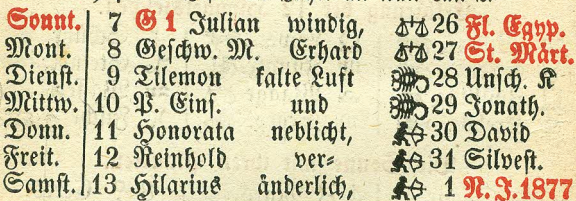 Sount. 7 G 1 Julian windig, 26 Fl. Egyp.
Mont. 8 Geschw. M. Erhard 27 St. Märt.
Dienst. 9 Tilemon kalte Luft 28 Unsch. K
Mittw. 10 P. Eins. und 29 Jonath.
Donn. 11 Honorata neblicht, 30 David
Freit. 12 Reinhold ver- 31 Silvest.
Samst. 13 Hilarius änderlich, 1 N. J. 1877